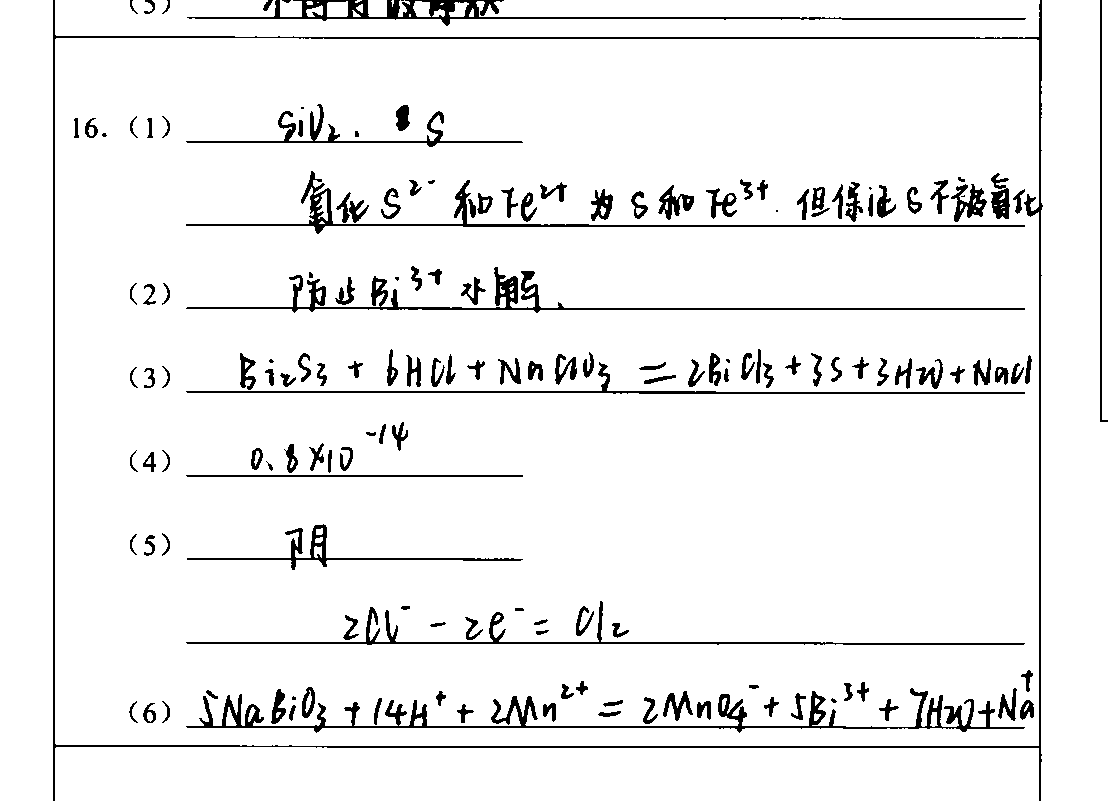 (5) 不得有波浪状
16. (1) SiO₂、S
氧化 S²⁻ 和 Fe²⁺ 为 S 和 Fe³⁺. 但保证 S 不被氧化
(2) 防止 Bi³⁺ 水解、
(3) Bi₂S₃ + 6HCl + NaClO₃ = 2BiCl₃ + 3S + 3H₂O + NaCl
(4) 0.8×10⁻¹⁴
(5) 阴
2Cl⁻ - 2e⁻ = Cl₂
(6) 5NaBiO₃ + 14H⁺ + 2Mn²⁺ = 2MnO₄⁻ + 5Bi³⁺ + 7H₂O + Na⁺